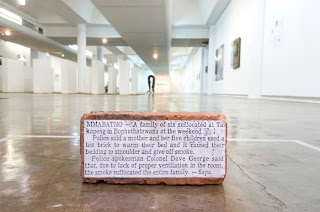 MMABATHO — A family of six suffocated at Ta
kapeng in Bophuthatswana at the weekend.
Police said a mother and her five children used a
hot brick to warm their bed and it caused their
bedding to smoulder and give off smoke.
Police spokesman Colonel Dave George said
that, due to lack of proper ventilation in the room,
the smoke suffocated the entire family. — Sapa.